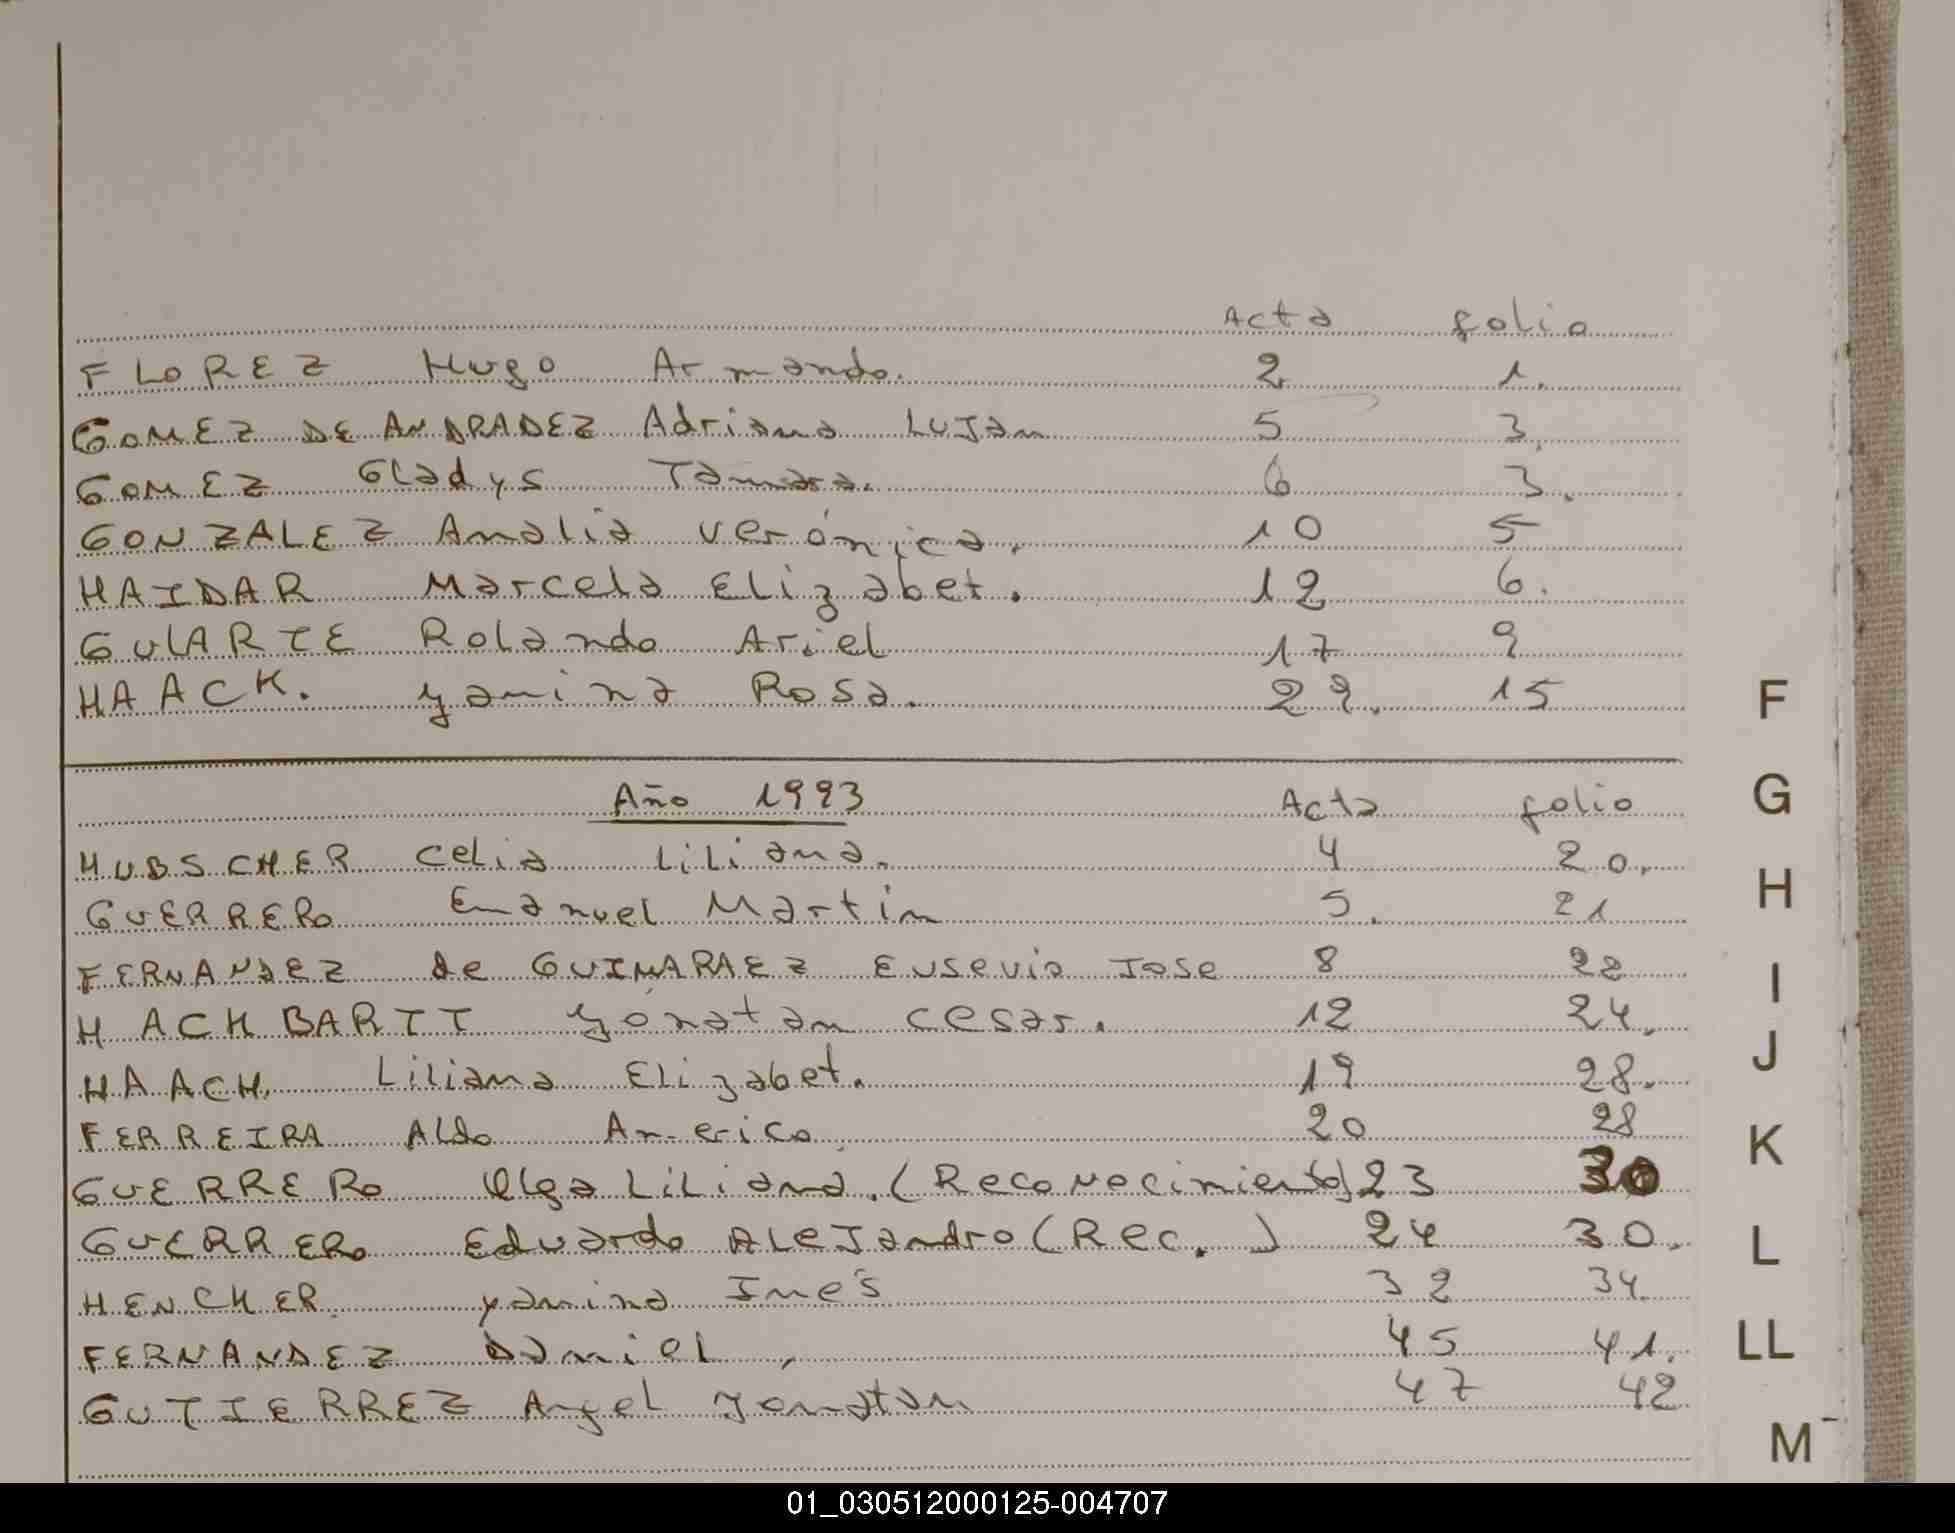 Acta folio
FLOREZ Hugo Armando. 2 1.
GOMEZ DE ANDRADEZ Adriana LUJan 5 3.
GOMEZ Gladys Tamara. 6 3.
GONZALEZ Analia verónica. 10 5
HAIDAR Marcela Elizabet. 12 6.
GULARTE Rolando Ariel 17 9
HAACK. yamina Rosa. 29. 15
F
Año 1993 Acta folio
G
HUBSCHER Celia Liliana. 4 20.
H
GUERRERO Emanuel Martin 5. 21
FERNANDEZ de GUIMARAEZ Eusevio Jose 8 22
I
HACHBARTT yónatan cesar. 12 24.
J
HAACH. Liliana Elizabet. 19 28.
FERREIRA Aldo Americo 20 28
K
GUERRERO Olga Liliana. (Reconocimiento) 23 30
GUERRERO Eduardo ALeJandro (Rec.) 24 30.
L
HENCHER yamina Inés 32 34.
FERNANDEZ Daniel, 45 41.
LL
GUTIERREZ Angel Jonatan 47 42
M
01_030512000125-004707